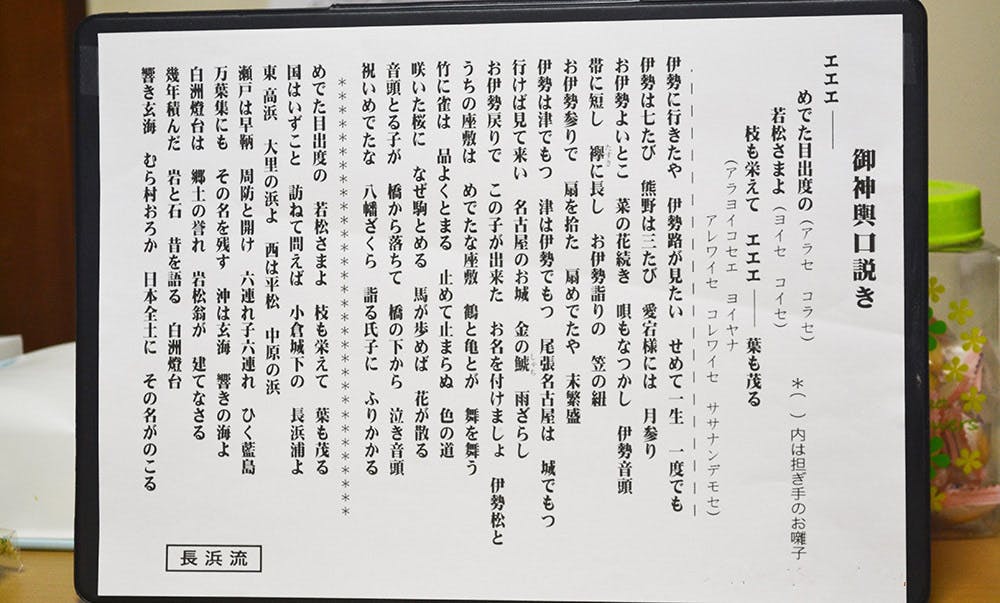 御神輿口説き
＊（　）内は担ぎ手のお囃子
エエエ ――
めでた目出度の（アラセ　コラセ）
若松さまよ（ヨイセ　コイセ）
枝も栄えて　エエエ ―― 葉も茂る
（アラヨイコセエ　ヨイヤナ
アレワイセ　コレワイセ　ササナンデモセ）
伊勢に行きたや　伊勢路が見たい　せめて一生　一度でも
伊勢は七たび　熊野は三たび　愛宕様には　月参り
お伊勢よいとこ　菜の花続き　唄もなつかし　伊勢音頭
帯に短し　襷に長し　お伊勢詣りの　笠の紐
お伊勢参りで　扇を拾た　扇めでたや　末繁盛
伊勢は津でもつ　津は伊勢でもつ　尾張名古屋は　城でもつ
行けば見て来い　名古屋のお城　金の鯱　雨ざらし
お伊勢戻りで　この子が出来た　お名を付けましょ　伊勢松と
うちの座敷は　めでたな座敷　鶴と亀とが　舞を舞う
竹に雀は　品よくとまる　止めて止まらぬ　色の道
咲いた桜に　なぜ駒とめる　馬が歩めば　花が散る
音頭とる子が　橋から落ちて　橋の下から　泣き音頭
祝いめでたな　八幡ざくら　詣る氏子に　ふりかかる
＊＊＊＊＊＊＊＊＊＊＊＊＊＊＊＊＊＊＊＊＊＊＊＊＊＊＊
めでた目出度の　若松さまよ　枝も栄えて　葉も茂る
国はいずこと　訪ねて問えば　小倉城下の　長浜浦よ
東　高浜　大里の浜よ　西は平松　中原の浜
瀬戸は早鞆　周防と開け　六連れ子六連れ　ひく藍島
万葉集にも　その名を残す　沖は玄海　響きの海よ
白洲燈台は　郷土の誉れ　岩松翁が　建てなさる
幾年積んだ　岩と石　昔を語る　白洲燈台
響き玄海　むら村おろか　日本全土に　その名がのこる
長浜流